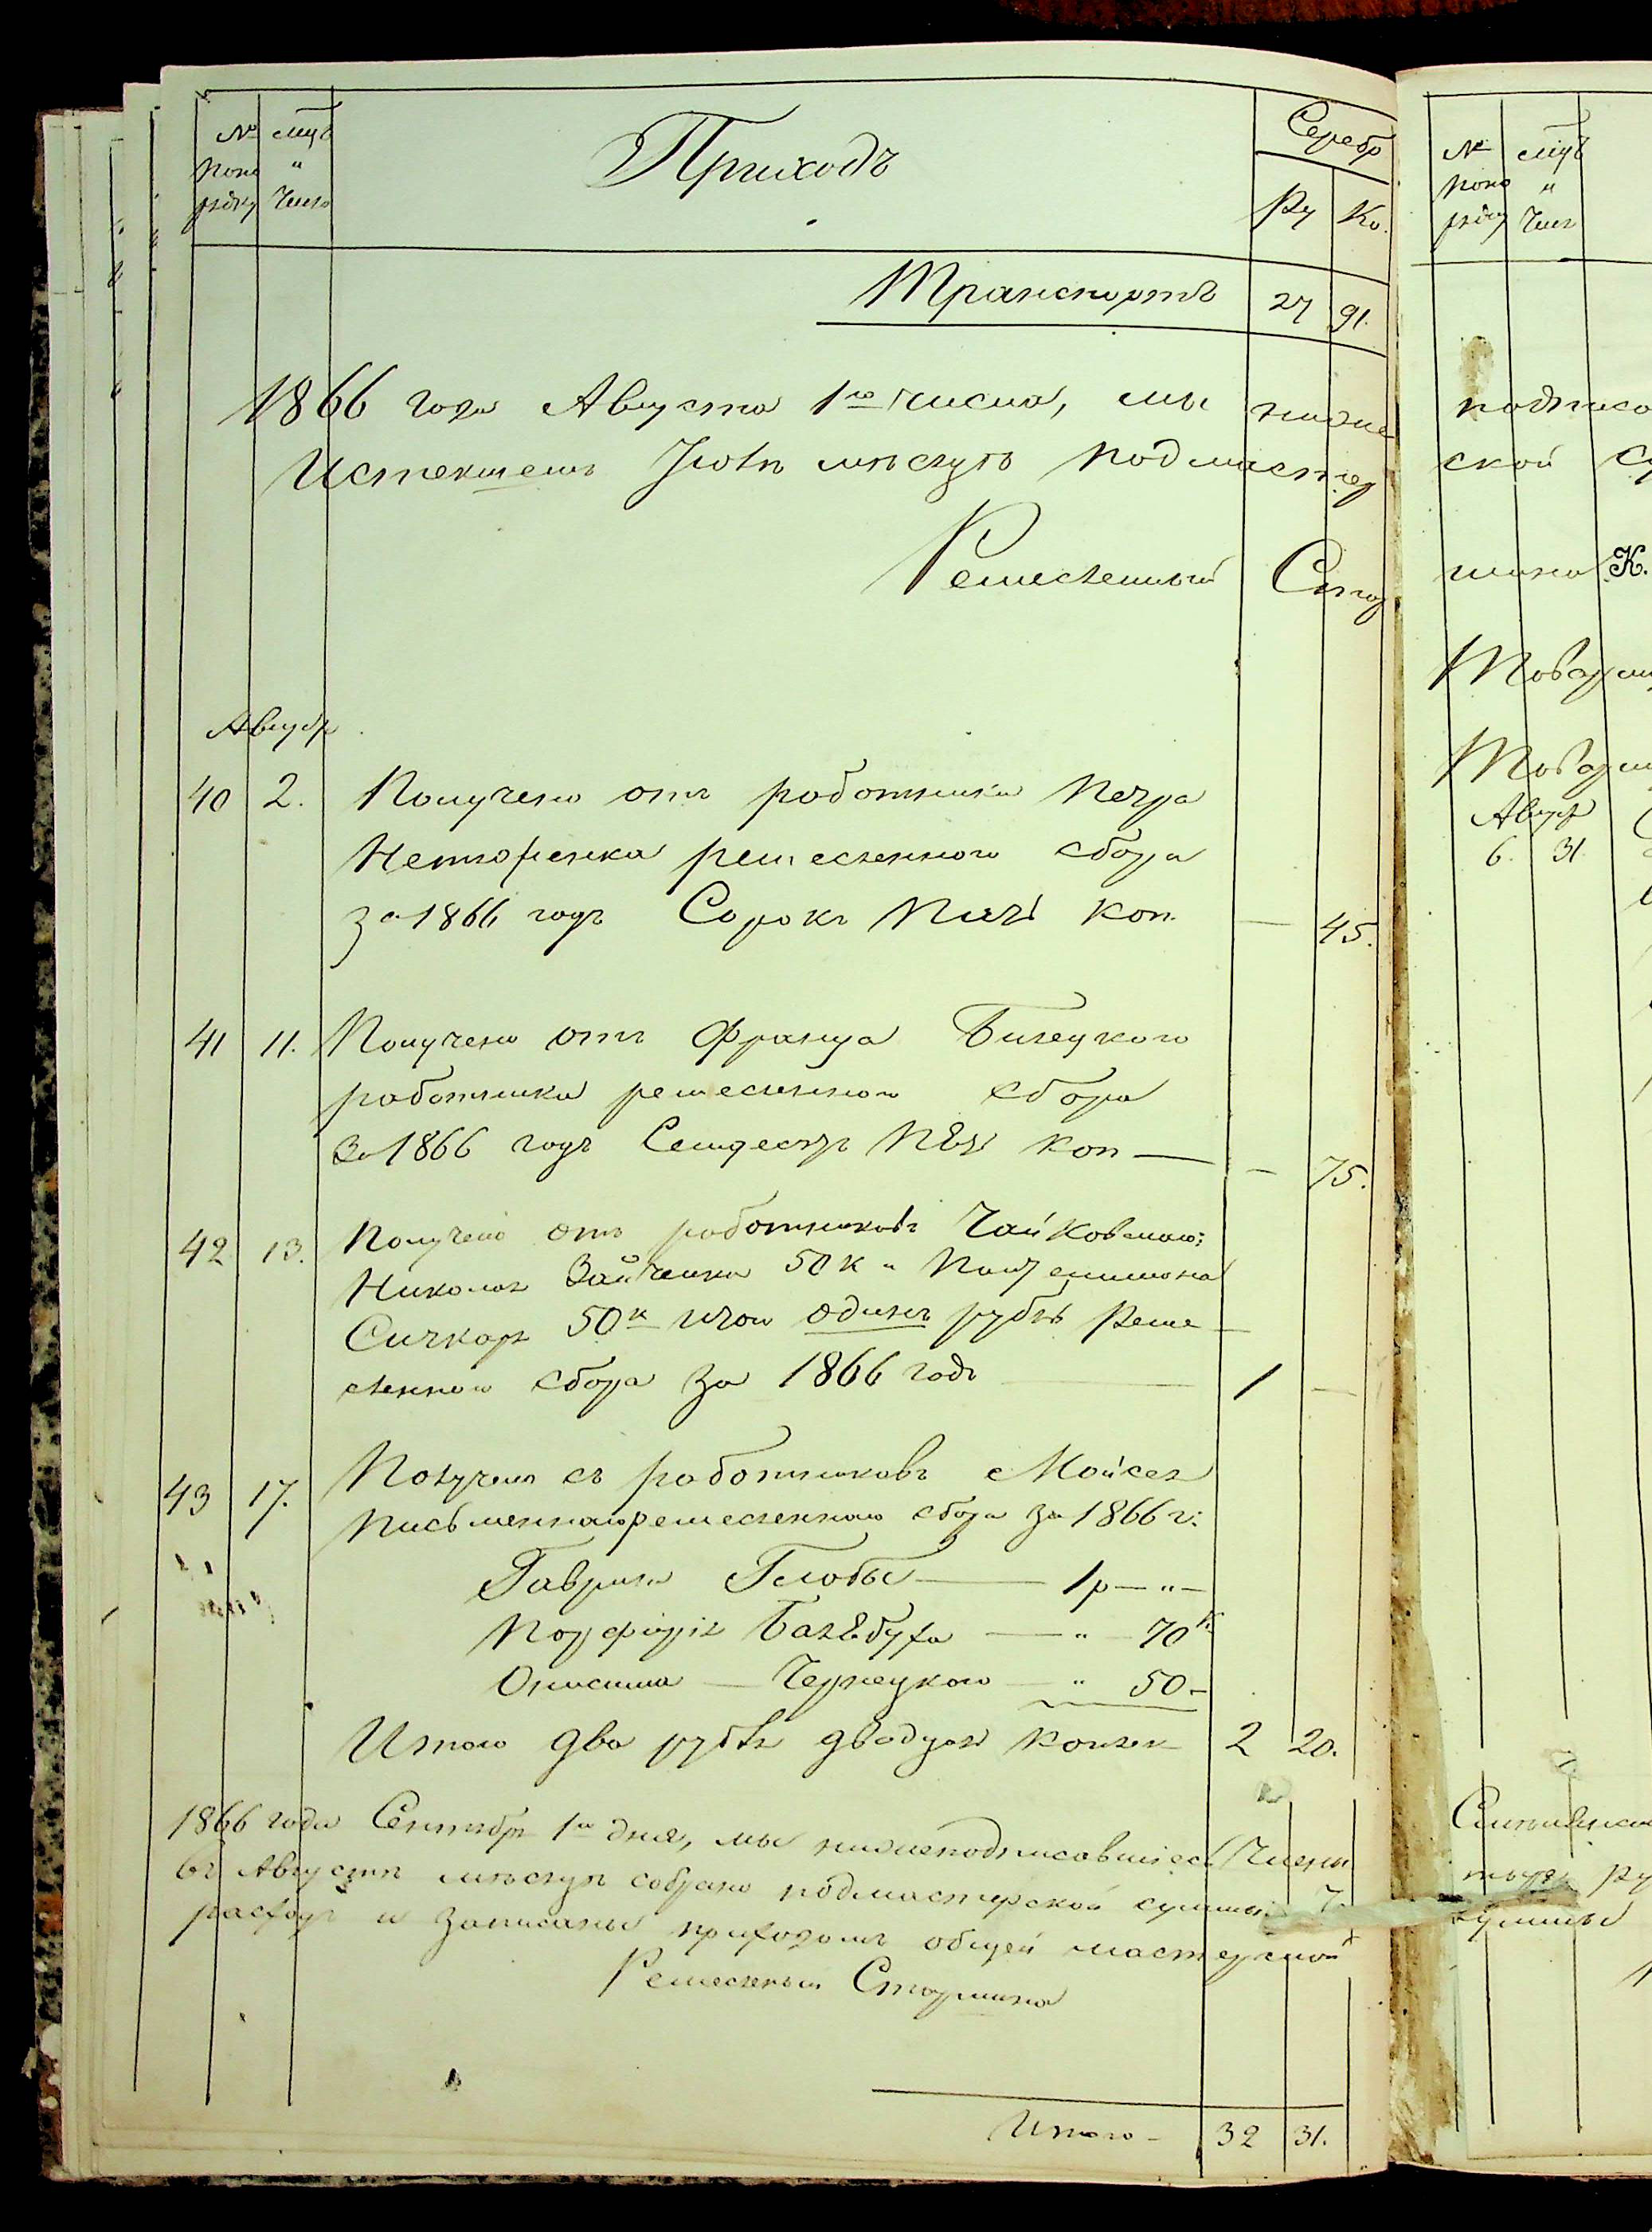 № мцъ
поно "
рядку Число
Приходъ
Серебр
Ру Ко.
Транспортъ 27 91.
1866 года Августа 1го числа, мы ниже
Истекшемъ Іюлѣ мѣсяцѣ подмастер
Ремесленный Стар
Август
40 2. Получено отъ работника Петра
Нетюренка ремесленного сбора
за 1866 годъ Сорокъ Пять коп. — 45.
41 11. Получено отъ Франца Билецкого
работника ремесленного сбора
За 1866 годъ Семдесятъ Пѣть коп — — 75.
42 13. Получено отъ работниковъ Чайковского;
Николая Зайченка 50 к и Пантелимона
Сичкаря 50к итого одинъ рубль Реме
сленного сбора за 1866 годъ — 1 —
43 17. Получено съ работниковъ Мойсея
Письменного ремесленного сбора за 1866 г:
Гаврила Глобы — 1 р — " —
Порфирія Балабуха — " — 70 к
Онисима — Чернецкого — " 50 —
Итого два рубля двадцать копѣек 2 20.
1866 года Сентября 1го дня, мы нижеподписавшіеся Члены
въ Августѣ мѣсяцѣ собрано подмастерской суммы
расходъ и записаны приходомъ общей мастерской
Ремесленный Старшина
Итого — 32 31.
№ мцъ
поно "
рядку Число
подписа
ской су
шина К.
Товарищ
Товарищ
Август
6. 31.
ру
суммы